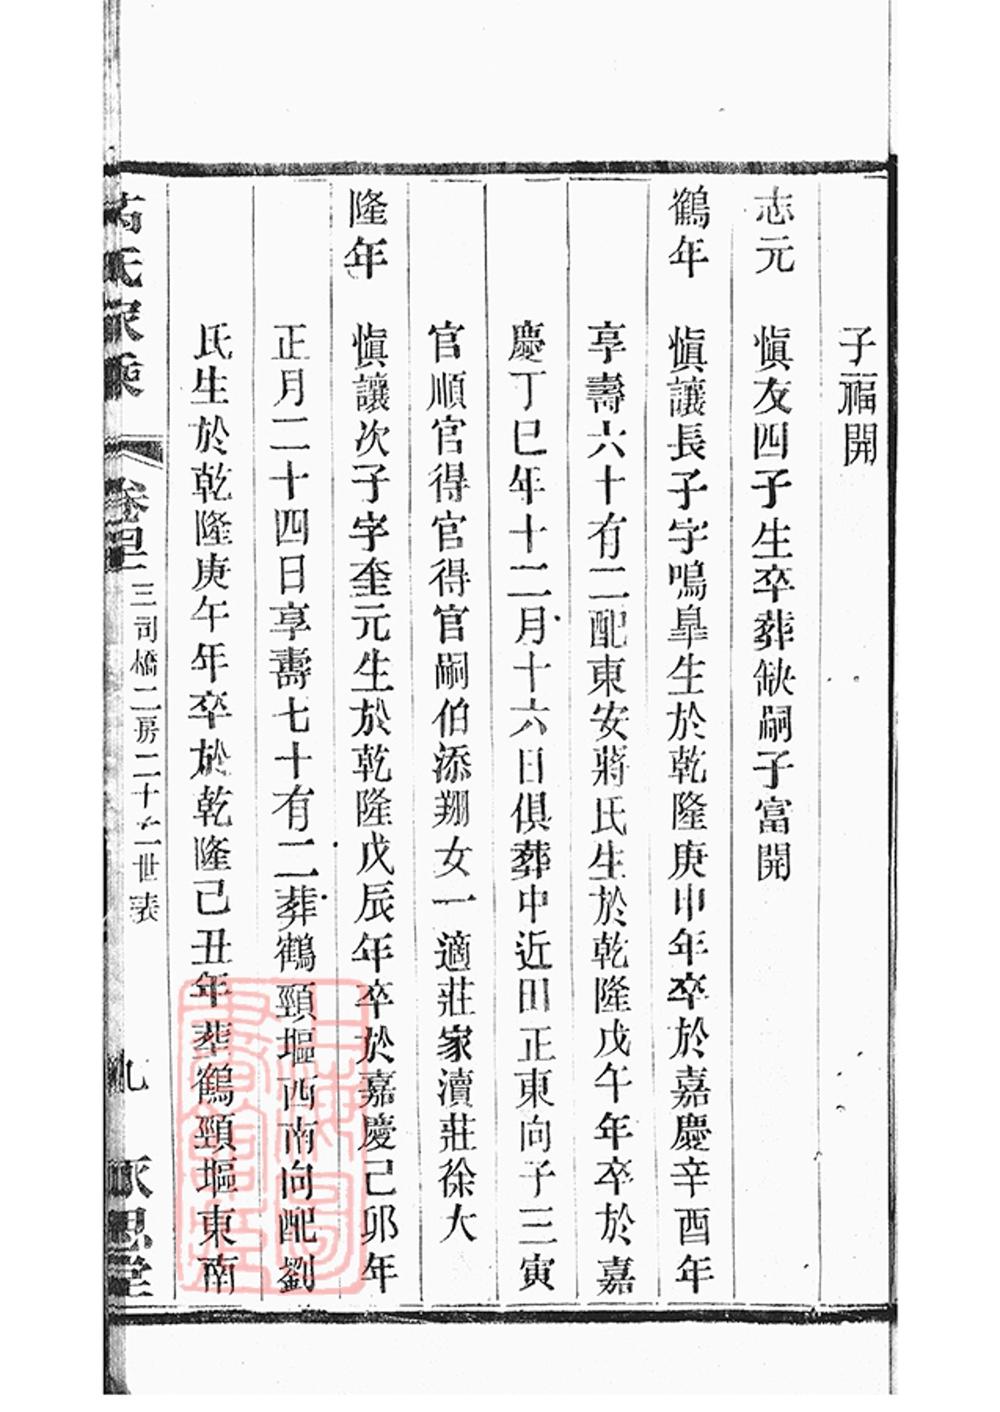 子福開
志元　愼友四子生卒葬缺嗣子富開
鶴年　愼讓長子字鳴臯生於乾隆庚申年卒於嘉慶辛酉年
享壽六十有二配東安蔣氏生於乾隆戊午年卒於嘉
慶丁巳年十二月十六日俱葬中近田正東向子三寅
官順官得官得官嗣伯添翔女一適莊家瀆莊徐大
隆年　愼讓次子字奎元生於乾隆戊辰年卒於嘉慶己卯年
正月二十四日享壽七十有二葬鶴頸塸西南向配劉
氏生於乾隆庚午年卒於乾隆己丑年葬鶴頸塸東南
氏家乘　卷四　三司橋二房二十二世表　九　思堂